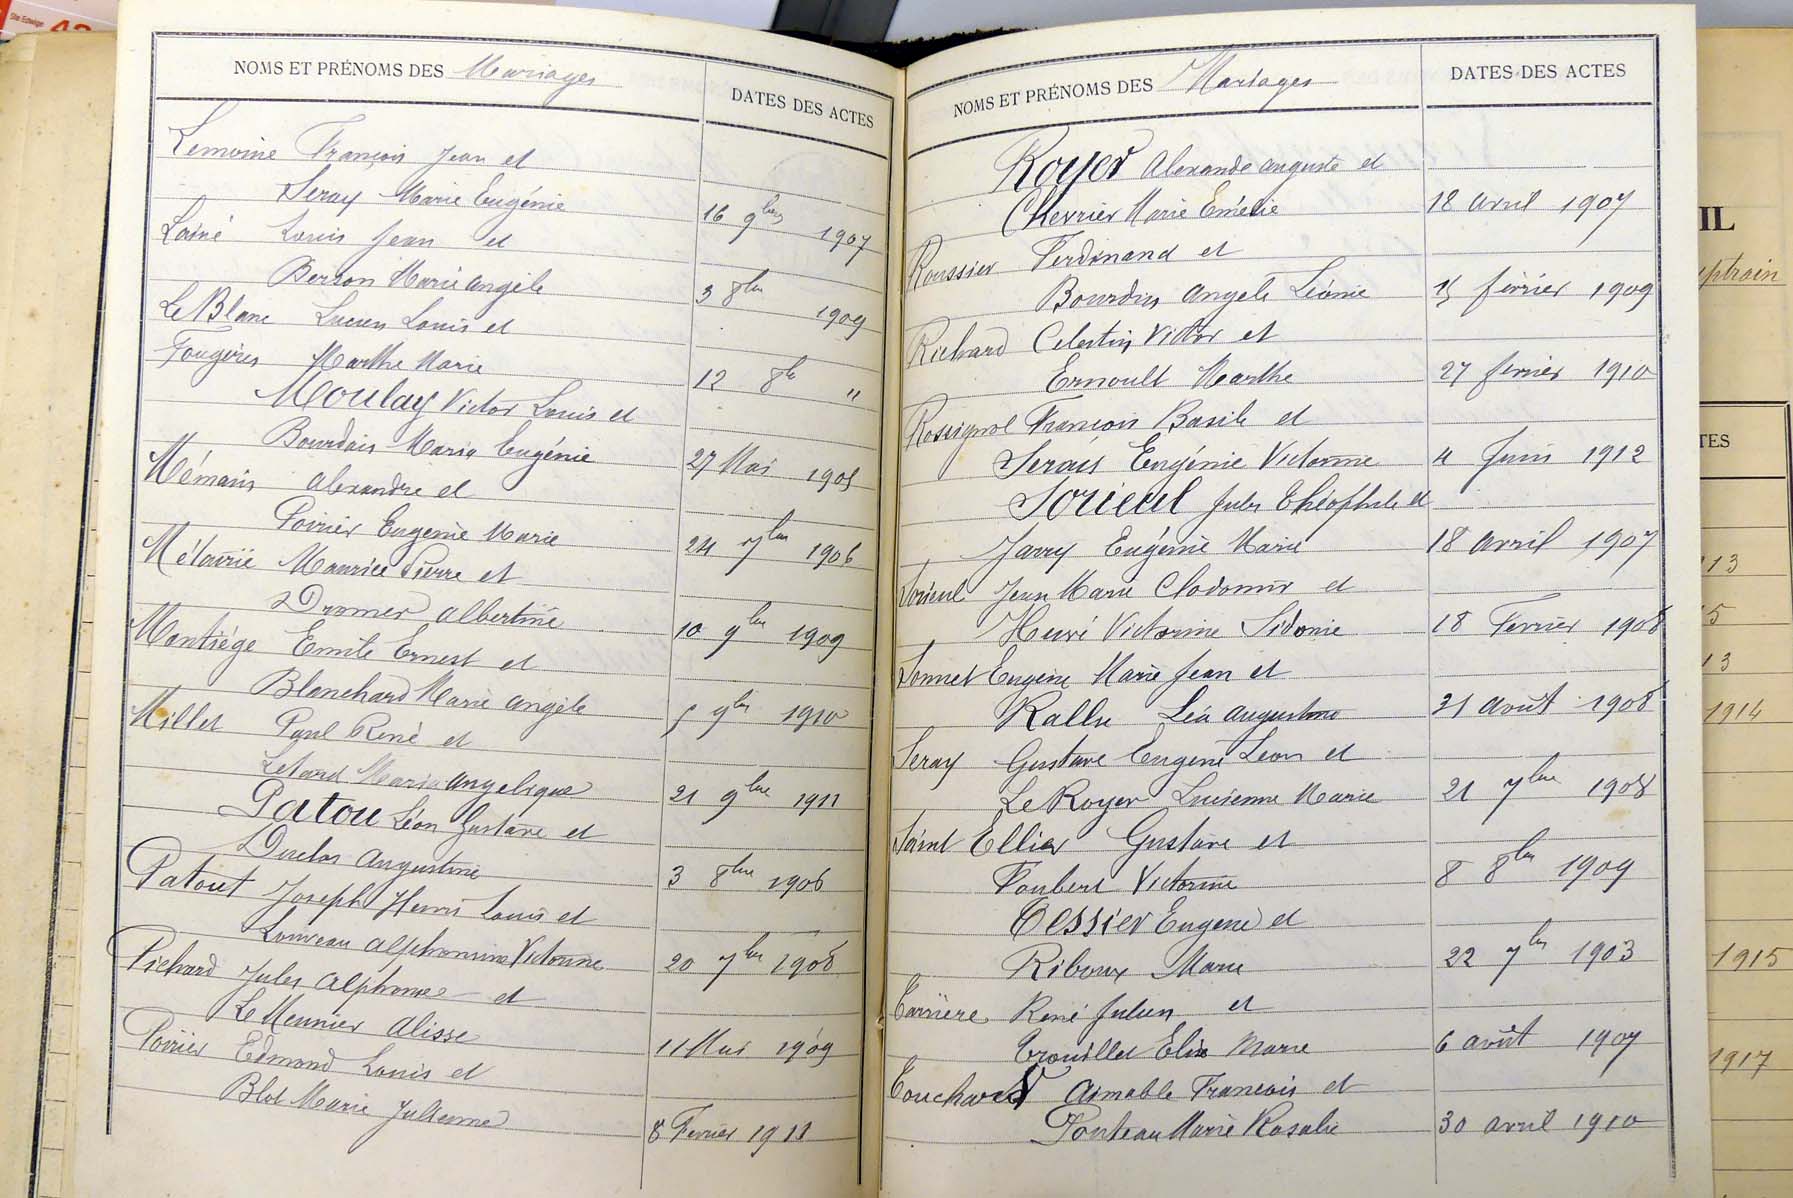 Ste Edwige
NOMS ET PRÉNOMS DES Mariages
DATES DES ACTES
Lemoine François Jean et
Seray Marie Eugénie 16 9bre 1907
Lainé Louis Jean et
Berson Marie Angèle 3 8bre 1909
Le Blanc Lucien Louis et
Fougères Marthe Marie 12 8bre "
Moulay Victor Louis et
Bourdais Maria Eugénie 27 Mai 1905
Mémain Alexandre et
Poirier Eugénie Marie 24 7bre 1906
Métairie Maurice Pierre et
Dromer Albertine 10 9bre 1909
Montiége Emile Ernest et
Blanchard Marie Angèle 5 9bre 1910
Millet Paul René et
Letard Maria Angelique 21 9bre 1911
Patou Léon Gustave et
Duclos Augustine 3 8bre 1906
Patout Joseph Henri Louis et
Louveau Alphonsine Victorine 20 7bre 1908
Pichard Jules Alphonse et
Le Meunier Alisse 11 Mai 1909
Poirier Edmond Louis et
Blot Marie Julienne 8 Fevrier 1911
NOMS ET PRÉNOMS DES Mariages
DATES DES ACTES
Royer Alexande Auguste et
Chevrier Marie Emélie 18 Avril 1907
Roussier Ferdinand et
Bourdin Angèle Léonie 15 février 1909
Richard Celestin Victor et
Ernoult Marthe 27 fevrier 1910
Rossignol François Basile et
Serais Eugénie Victorine 4 Juin 1912
Sorieul Jules Théophile et
Jarry Eugénie Marie 18 Avril 1907
Sorieul Jean Marie Clodomir et
Hervé Victorine Sidonie 18 Fevrier 1908
Sonnet Eugène Marie Jean et
Rallu Léa Augustine 31 Août 1908
Seray Gustave Eugene Leon et
Le Royer Lucienne Marie 21 7bre 1908
Saint Ellier Gustave et
Foubert Victorine 8 8bre 1909
Tessier Eugene et
Riboux Marie 22 7bre 1903
Tarrière René Julien et
Trouillet Elise Marie 6 août 1907
Touchard Aimable Francois et
Ponteau Marie Rosalie 30 avril 1910
IL
TES
13
5
13
1914
1915
1917